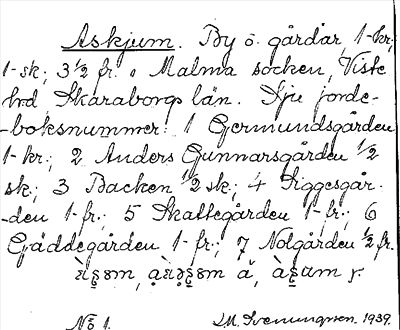 Askjum. By o. gårdar, 1-kr;
1-sk; 3 1/2 fr. i Malma socken, Viste
hrd, Skaraborgs län. Sju jorde-
-boksnummer: 1 Germundsgården
1-kr; 2 Anders Gunnarsgården 1/2
sk; 3 Backen 1/2 sk; 4 Siggesgår-
-den 1-fr; 5 Skattegården 1-fr; 6
Gäddegården 1-fr; 7 Nolgården 1/2 fr.
No 1. Svenungsson. 1939.